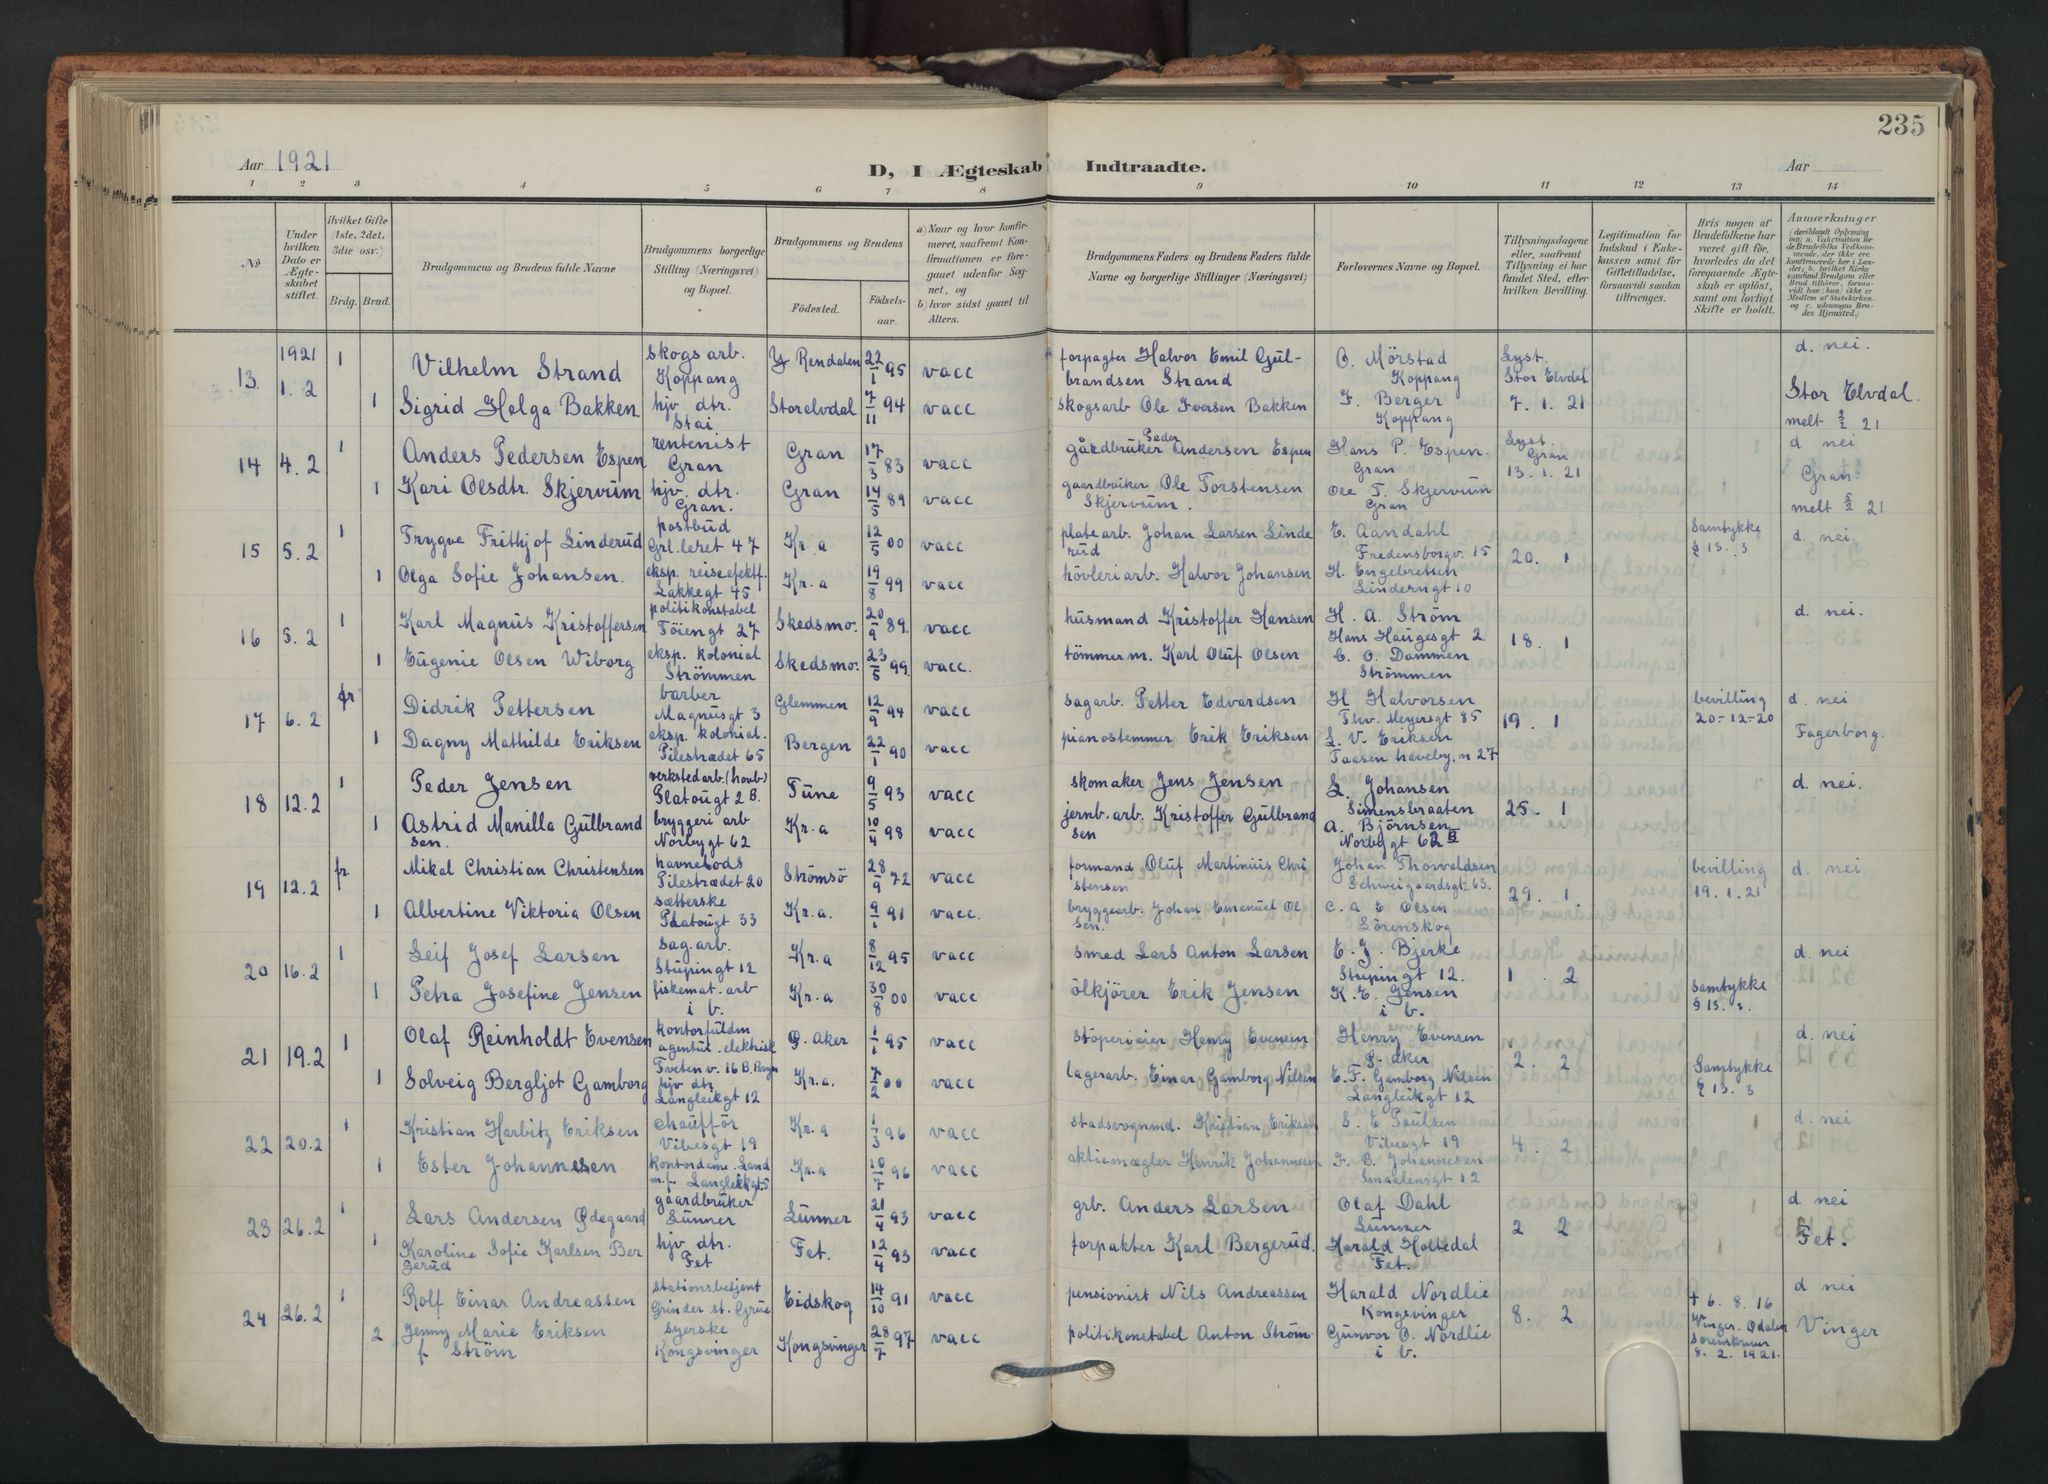 235
Aar 1921
D, I Ægteskab Indtraadte.
Aar
1 2 3 4 5 6 7 8 9 10 11 12 13 14
No
Under hvilken Dato er Ægteskabet stiftet.
Hvilket Gifte (1ste, 2det, 3die osv.)
Brdg. Brud.
Brudgommens og Brudens fulde Navne
Brudgommens borgerlige Stilling (Næringsvei) og Bopæl.
Brudgommens og Brudens
Fødested. Fødselsaar.
a) Naar og hvor konfirmeret, saafremt Konfirmationen er foregaaet udenfor Sognet, og
b) hvor sidst gaaet til Alters.
Brudgommens Faders og Brudens Faders fulde Navne og borgerlige Stillinger (Næringsvei)
Forlovernes Navne og Bopæl.
Tillysningsdagene eller, saafremt Tillysning ei har fundet Sted, efter hvilken Bevilling.
Legitimation for Indskud i Enkekassen samt for Giftetilladelse, forsaavidt saadan tiltrænges.
Hvis nogen af Brudefolkene har været gift før, hvorledes da det foregaaende Ægteskab er opløst, samt om lovligt Skifte er holdt.
Anmærkninger
13 1921 1.2 1 Vilhelm Strand skogsarb. Koppang Y Rendalen 22/1 95 vacc forpagter Halvor Emil Gulbrandsen Strand O. Mörstad Koppang Lyst. Stor Elvdal d. nei.
1 Sigrid Helga Bakken hjv dtr. Stai Storelvdal 7/11 94 vacc skogsarb Ole Iversen Bakken F. Berger Koppang 7.1.21 Stor Elvdal. melt 2/2 21
14 4.2 1 Anders Pedersen Espen rentenist Gran Gran 17/3 83 vacc gårdbruker Peder Andersen Espen Hans P. Espen. Gran Lyst. Gran 13.1.21 d nei
1 Kari Olsdtr. Skjervum hjv. dtr. Gran. Gran 14/5 89 vacc gaardbruker Ole Torstensen Skjervum. Ole T. Skjervum Gran Gran. melt 5/2 21
15 5.2 1 Trygve Frithjof Linderud postbud Grl.leret 47 Kr.a 12/5 00 vacc platearb. Johan Larsen Linderud E. Aandahl Fredensborgv. 15 20. 1 Samtykke § 13. 3 d. nei.
1 Olga Sofie Johansen. eksp. reiseefektf. Lakkegt 45 Kr.a 19/8 99 vacc hövleriarb. Halvor Johansen H. Engebretsen Lindernsgt 10
16 5.2 1 Karl Magnus Kristoffersen politikonstabel Töiengt 27 Skedsmo. 20/9 89. vacc husmand Kristoffer Hansen H. A. Ström Hans Haugesgt 2. 18. 1 d. nei.
1 Eugenie Olsen Wiborg eksp. kolonial Strömmen Skedsmo. 23/5 99. vacc. tömmerm. Karl Oluf Olsen C. O. Dammen Strömmen
17 6.2 fr Didrik Pettersen barber Magnusgt 3 Glemmen 12/9 94 vacc sagarb. Petter Edvardsen H. Halvorsen Thv. Meyersgt 85 19. 1 bevilling 20-12-20 d. nei
1 Dagny Mathilde Eriksen eksp. kolonial. Pilestrædet 65 Bergen 22/1 90 vacc pianostemmer Erik Eriksen L. V. Eriksen Taasen haveby. n 27 Fagerborg.
18 12.2 1 Peder Jensen verkstedarb. (hovb) Platougt 2 B. Tune 9/5 93 vacc skomaker Jens Jensen L. Johansen Simensbraaten 25. 1 d. nei.
1 Astrid Manilla Gulbrandsen. bryggeri arb Norbygt 62 Kr.a 10/4 98 vacc jernb. arb. Kristoffer Gulbrandsen A. Björnsen Norbygt 62 II
19 12.2 fr Mikal Christian Christensen havnelods Pilestrædet 20 Strömsö 28/9 72 vacc formand Oluf Martinius Christensen Johan Thorvaldsen Schweigaardsgt 63. 29. 1. bevilling 19.1.21 d. nei
1 Albertine Viktoria Olsen sætterske Platougt 33 Kr.a. 9/1 91 vacc. bryggearb. Johan Emanuel Olsen. C. A E Olsen Lörenskog
20 16.2 1 Leif Josef Larsen sag.arb. Stupingt 12 Kr.a 8/12 95 vacc smed Lars Anton Larsen E. J. Bjerke Stupingt 12. 1. 2 d. nei
1 Petra Josefine Jensen fiskemat. arb i b. Kr.a 30/8 00 vacc ölkjörer Erik Jensen K. E. Jensen i b. Samtykke § 13. 3.
21 19.2 1 Olaf Reinholdt Evensen kontorfuldm agentur. elektrisk Tveten v. 16 B. Bryn Ø. Aker 1/1 95 vacc støperieier Henry Evensen Henry Evensen Ø. aker 2. 2 d. nei
1 Solveig Bergljot Gamborg hjv dtr. Langleikgt 12 Kr.a. 7/2 00 vacc lagerarb. Einar Gamborg Nilsen E. F. Gamborg Nilsen Langleikgt 12 Samtykke § 13. 3
22 20.2 1 Kristian Harbitz Eriksen chaufför Vibesgt 19 Kr.a 1/3 96 vacc stadsvognmd. Kristian Eriksen S. E Poulsen Vibesgt 19 4. 2 d. nei
1 Ester Johannesen kontordame. Land m.f. Langleikgt 5 Kr.a 10/7 96 vacc aktiemægler Henrik Johannesen F. B. Johannesen Smaalensgt 12
23 26.2 1 Lars Andersen Ødegaard gaardbruker Lunner Lunner 21/4 93 vacc grb. Anders Larsen Olaf Dahl Lunner 2 2 d. nei
1 Karoline Sofie Karlsen Bergerud hjv dtr. Fet Fet. 12/4 93 vacc forpakter Karl Bergerud. Harald Holtedal Fet. Fet.
24 26.2 1 Rolf Einar Andreassen stationsbetjent Grinder st. Grue Eidskog 14/10 91 vacc pensionist Nils Andreassen Harald Nordlie Kongsvinger 8. 2 † 6. 8. 16 d nei
2 Jenny Marie Eriksen f Ström syerske Kongsvinger Kongsvinger 28/7 97 vacc politikonstabel Anton Ström Gunvor O. Nordlie i b. Vinger. Odalen Sorenskriver 8. 2. 1921. Vinger